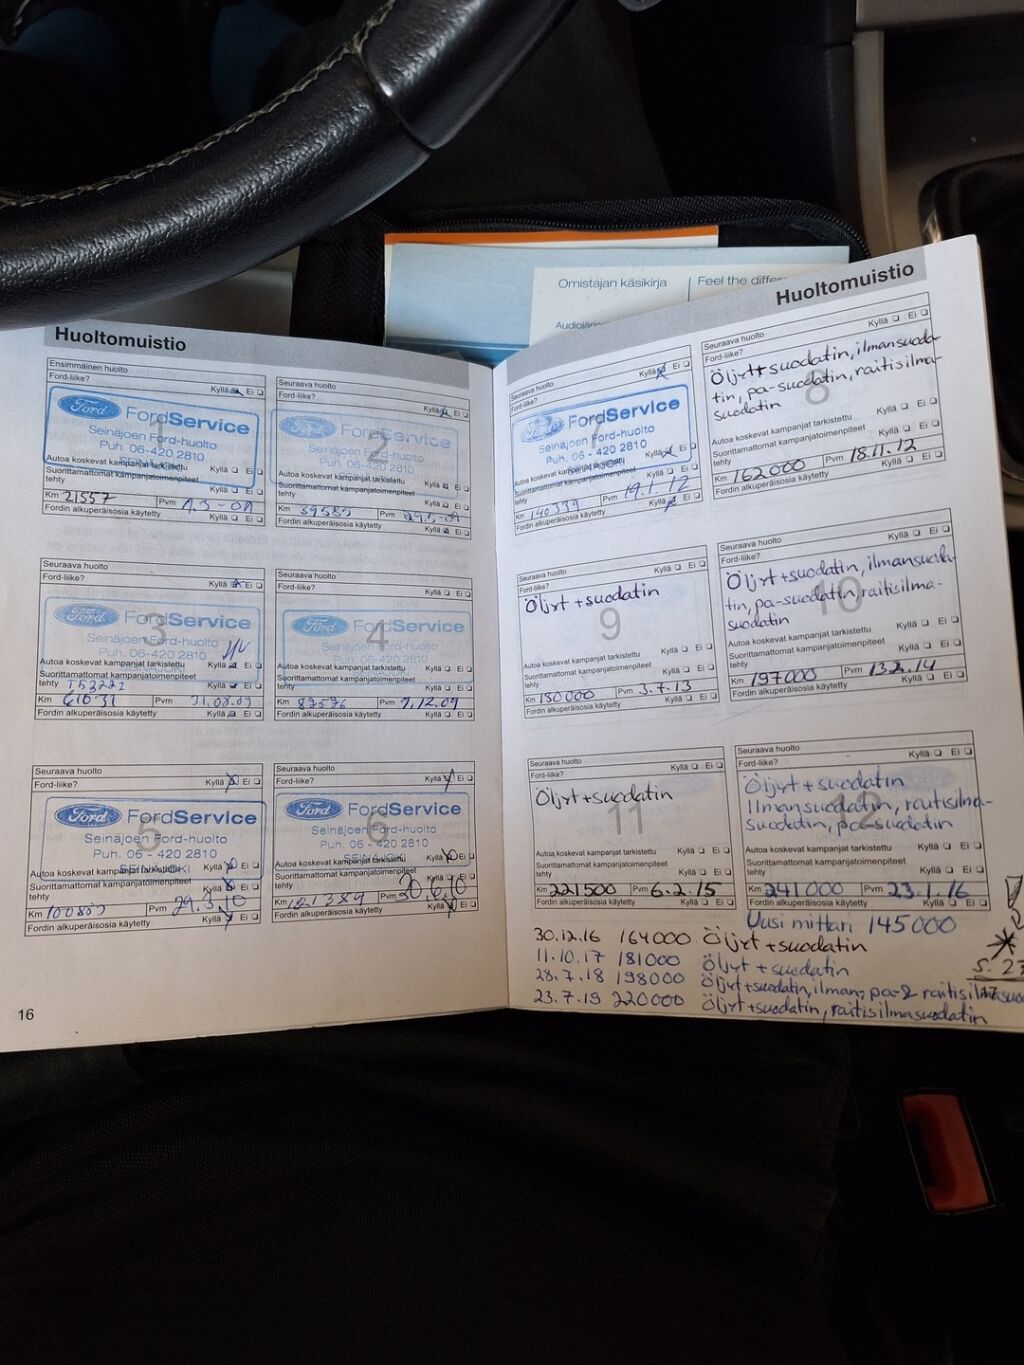 Omistajan käsikirja
Feel the diffe
Huoltomuistio
Ensimmäinen huolto
Ford-liike?
Kyllä Ei
Ford FordService
Seinäjoen Ford-huolto
Puh. 06 - 420 2810
1
Autoa koskevat kampanjat tarkistettu
Kyllä Ei
Suorittamattomat kampanjatoimenpiteet
tehty
Kyllä Ei
Km 21557 Pvm
Fordin alkuperäisosia käytetty
Kyllä Ei
Seuraava huolto
Ford-liike?
Kyllä Ei
Ford FordService
Seinäjoen Ford-huolto
Puh. 06-420 2810
2
Autoa koskevat kampanjat tarkistettu
Kyllä Ei
Suorittamattomat kampanjatoimenpiteet
tehty
Kyllä Ei
Km Pvm
Fordin alkuperäisosia käytetty
Kyllä Ei
Seuraava huolto
Ford-liike?
Kyllä Ei
Ford FordService
Seinäjoen Ford-huolto
Puh. 06-420 2810
3
Autoa koskevat kampanjat tarkistettu
Kyllä Ei
Suorittamattomat kampanjatoimenpiteet
tehty
Kyllä Ei
Km Pvm
Fordin alkuperäisosia käytetty
Kyllä Ei
Seuraava huolto
Ford-liike?
Kyllä Ei
Ford FordService
Seinäjoen Ford-huolto
Puh. 06-420 2810
4
Autoa koskevat kampanjat tarkistettu
Kyllä Ei
Suorittamattomat kampanjatoimenpiteet
tehty
Kyllä Ei
Km Pvm 7.12.09
Fordin alkuperäisosia käytetty
Kyllä Ei
Seuraava huolto
Ford-liike?
Kyllä Ei
Ford FordService
Seinäjoen Ford-huolto
Puh. 06 - 420 2810
5
Autoa koskevat kampanjat tarkistettu
Kyllä Ei
Suorittamattomat kampanjatoimenpiteet
tehty
Kyllä Ei
Km Pvm 29.3.10
Fordin alkuperäisosia käytetty
Kyllä Ei
Seuraava huolto
Ford-liike?
Kyllä Ei
Ford FordService
Seinäjoen Ford-huolto
Puh. 06 - 420 2810
6
Autoa koskevat kampanjat tarkistettu
Kyllä Ei
Suorittamattomat kampanjatoimenpiteet
tehty
Kyllä Ei
Km 121389 Pvm 30.6.10
Fordin alkuperäisosia käytetty
Kyllä Ei
16
Huoltomuistio
Seuraava huolto
Ford-liike?
Kyllä Ei
Ford FordService
Seinäjoen Ford-huolto
Puh. 06 - 420 2810
Autoa koskevat kampanjat tarkistettu
Kyllä Ei
Suorittamattomat kampanjatoimenpiteet
tehty
Kyllä Ei
Km Pvm 19.1.12
Fordin alkuperäisosia käytetty
Seuraava huolto
Ford-liike?
Kyllä Ei
Öljyt+suodatin, ilmansuoda-
tin, pa-suodatin, raitisilma-
suodatin
8
Autoa koskevat kampanjat tarkistettu
Kyllä Ei
Suorittamattomat kampanjatoimenpiteet
tehty
Kyllä Ei
Km 162000 Pvm 18.11.12
Fordin alkuperäisosia käytetty
Kyllä Ei
Seuraava huolto
Ford-liike?
Kyllä Ei
Öljyt+suodatin
9
Autoa koskevat kampanjat tarkistettu
Kyllä Ei
Suorittamattomat kampanjatoimenpiteet
tehty
Kyllä Ei
Km 180000 Pvm 3.7.13
Fordin alkuperäisosia käytetty
Kyllä Ei
Seuraava huolto
Ford-liike?
Kyllä Ei
Öljyt+suodatin, ilmansuoda-
tin, pa-suodatin, raitisilma-
suodatin
10
Autoa koskevat kampanjat tarkistettu
Kyllä Ei
Suorittamattomat kampanjatoimenpiteet
tehty
Kyllä Ei
Km 197000 Pvm 13.2.14
Fordin alkuperäisosia käytetty
Kyllä Ei
Seuraava huolto
Ford-liike?
Kyllä Ei
Öljyt+suodatin
11
Autoa koskevat kampanjat tarkistettu
Kyllä Ei
Suorittamattomat kampanjatoimenpiteet
tehty
Kyllä Ei
Km 221500 Pvm 6.2.15
Fordin alkuperäisosia käytetty
Kyllä Ei
Seuraava huolto
Ford-liike?
Kyllä Ei
Öljyt+suodatin
Ilmansuodatin, raitisilma-
suodatin, pa-suodatin
12
Autoa koskevat kampanjat tarkistettu
Kyllä Ei
Suorittamattomat kampanjatoimenpiteet
tehty
Kyllä Ei
Km 241000 Pvm 23.1.16
Fordin alkuperäisosia käytetty
Kyllä Ei
Uusi mittari 145000
30.12.16 164000 Öljyt+suodatin
11.10.17 181000 Öljyt+suodatin
28.7.18 198000 Öljyt+suodatin, ilman-, pa- raitisilmasuo
23.7.19 220000 Öljyt+suodatin, raitisilmasuodatin